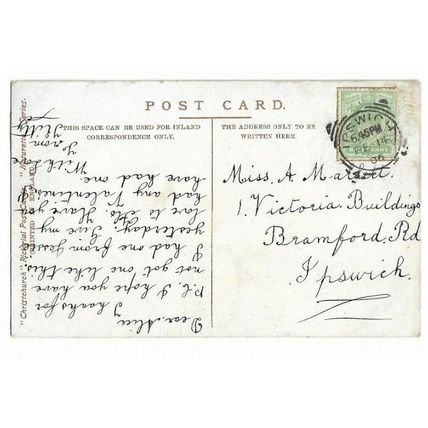 POST CARD.
THIS SPACE CAN BE USED FOR INLAND
CORRESPONDENCE ONLY.
THE ADDRESS ONLY TO BE
WRITTEN HERE.
"Christchurch" Pictorial Post
PRINTED IN ENGLAND
Series.
IPSWICH
5.45PM
FE 14
06
Miss A.
1. Victoria Buildings
Bramford. Rd
Ipswich.
Dear Alice
Thanks for
P.C. I hope you have
not got one like this.
I had one from Jess
yesterday. Give my
love to Flo Have you
had any Valentines
have had one.
With love
From
Kitty